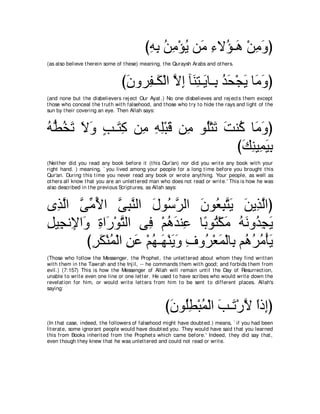 (وَمِنْ هَـؤُلاءِ مَن يُؤْمِنُ بِهِ)
(as also believe therein some of these) meaning, the Quraysh Arabs and others.
(وَمَا يَجْحَدُ بِـَايَـتِنَآ إِلاَّ الْكَـفِرونَ)
(and none but the disbelievers reject Our Ayat.) No one disbelieves and rejects them except those who conceal the truth with falsehood, and those who try to hide the rays and light of the sun by their covering an eye. Then Allah says:
(وَمَا كُنتَ تَتْلُو مِن قَبْلِهِ مِن كِتَـبٍ وَلاَ تَخُطُّهُ بِيَمِينِكَ)
(Neither did you read any book before it (this Qur'an) nor did you write any book with your right hand. ) meaning, `you lived among your people for a long time before you brought this Qur'an. During this time you never read any book or wrote anything. Your people, as well as others all know that you are an unlettered man who does not read or write.' This is how he was also described in the previous Scriptures, as Allah says:
(الَّذِينَ يَتَّبِعُونَ الرَّسُولَ النَّبِىَّ الأُمِّىَّ الَّذِى يَجِدُونَهُ مَكْتُوبًا عِندَهُمْ فِى التَّوْرَاةِ وَالإِنجِيلِ يَأْمُرُهُم بِالْمَعْرُوفِ وَيَنْهَـهُمْ عَنِ الْمُنْكَرِ)
(Those who follow the Messenger, the Prophet, the unlettered about whom they find written with them in the Tawrah and the Injil, -- he commands them with good; and forbids them from evil.) (7:157) This is how the Messenger of Allah will remain until the Day of Resurrection, unable to write even one line or one letter. He used to have scribes who would write down the revelation for him, or would write letters from him to be sent to different places. Allah's saying:
(إِذاً لاَّرْتَـبَ الْمُبْطِلُونَ)
(In that case, indeed, the followers of falsehood might have doubted.) means, `if you had been literate, some ignorant people would have doubted you. They would have said that you learned this from Books inherited from the Prophets which came before.' Indeed, they did say that, even though they knew that he was unlettered and could not read or write.